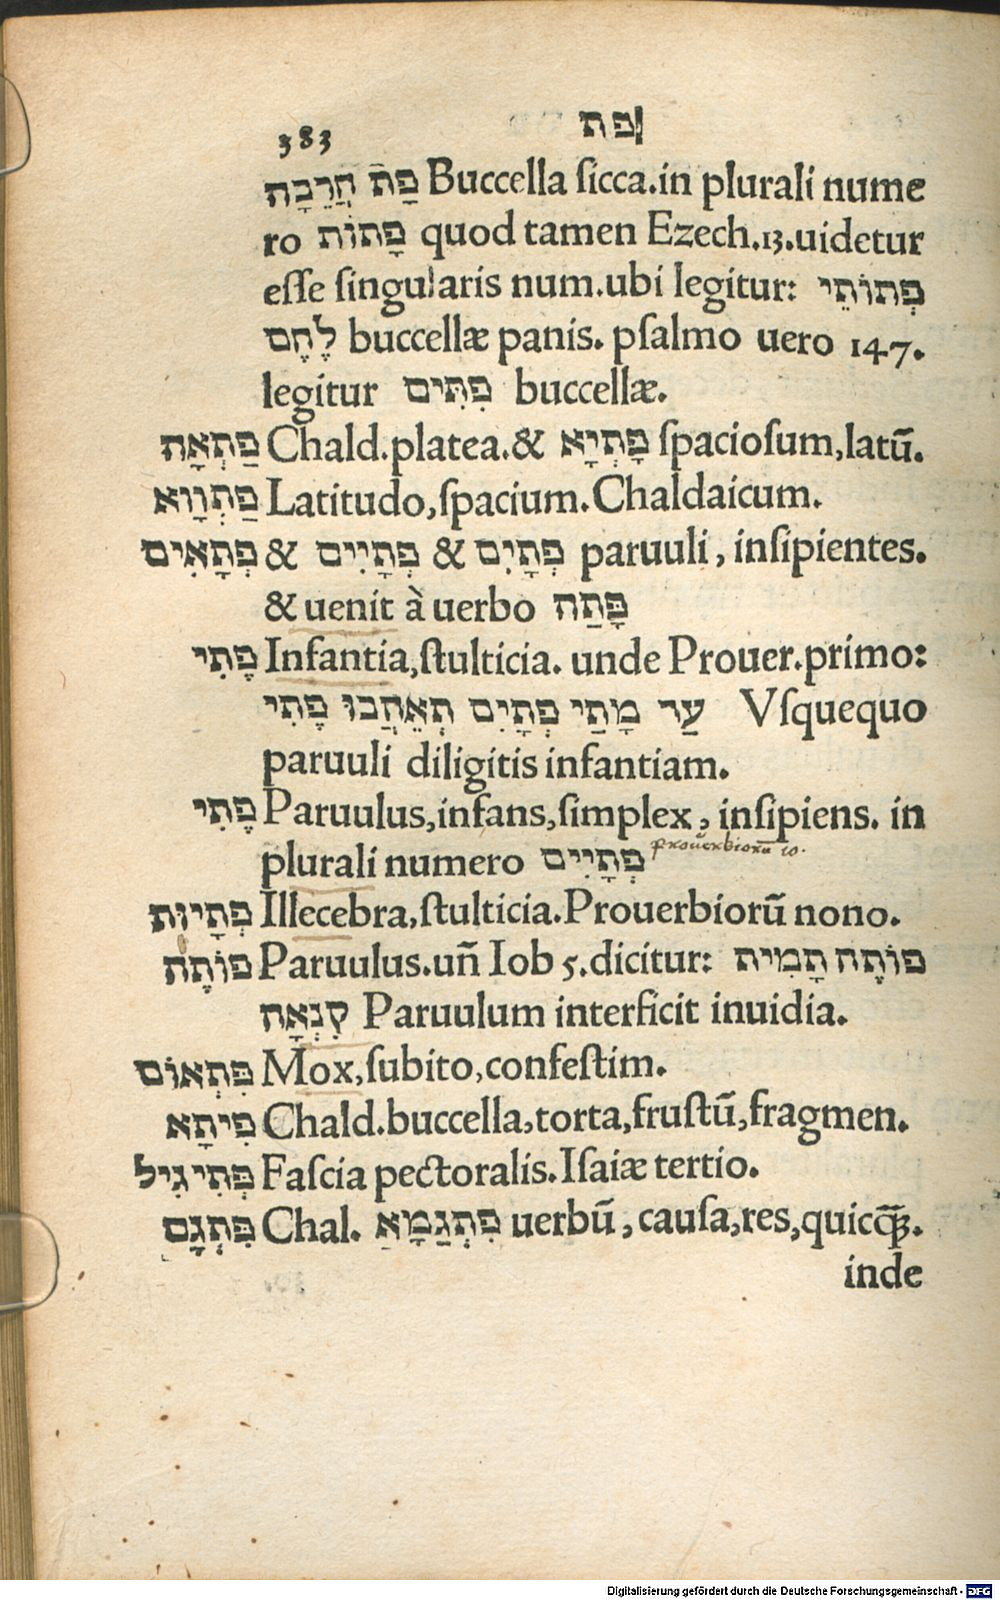 383 פת
פַּת חֲרֵבָה Buccella ſicca.in plurali nume
ro פָּתוֹת quod tamen Ezech.13.uidetur
eſſe ſingularis num.ubi legitur: פְּתוֹתֵי
לֶחֶם buccellæ panis. pſalmo uero 147.
legitur פִּתִּים buccellæ.
פַּתְאָה Chald.platea.& פָּתְיָא ſpacioſum,latū.
פַּתְוָוא Latitudo,ſpacium.Chaldaicum.
פְּתָאִים & פְּתָיִים & פְּתָיִם paruuli, inſipientes.
& uenit à uerbo פָּתַח
פֶּתִי Infantia,ſtulticia. unde Prouer.primo:
עַר מָתַי פְּתָיִם תְאֵהֲבוּ פֶתִי Vſquequo
paruuli diligitis infantiam.
פֶּתִי Paruulus,infans,ſimplex, inſipiens. in
plurali numero פְּתָיִים prouerbiorū 10.
פְּתָיוּת Illecebra,ſtulticia.Prouerbiorū nono.
פּוֹתֶה Paruulus.uñ Iob 5.dicitur: פוֹתֶה תָּמִית
קִנְאָה Paruulum interficit inuidia.
פִּתְאוֹם Mox,ſubito,confeſtim.
פִּיתָא Chald.buccella,torta,fruſtū,fragmen.
פְּתִי גִיל Faſcia pectoralis.Iſaiæ tertio.
פִּתְגָם Chal. פִּתְגַמָא uerbū, cauſa,res,quicq̄ꝫ.
inde
Digitalisierung gefördert durch die Deutsche Forschungsgemeinschaft - DFG